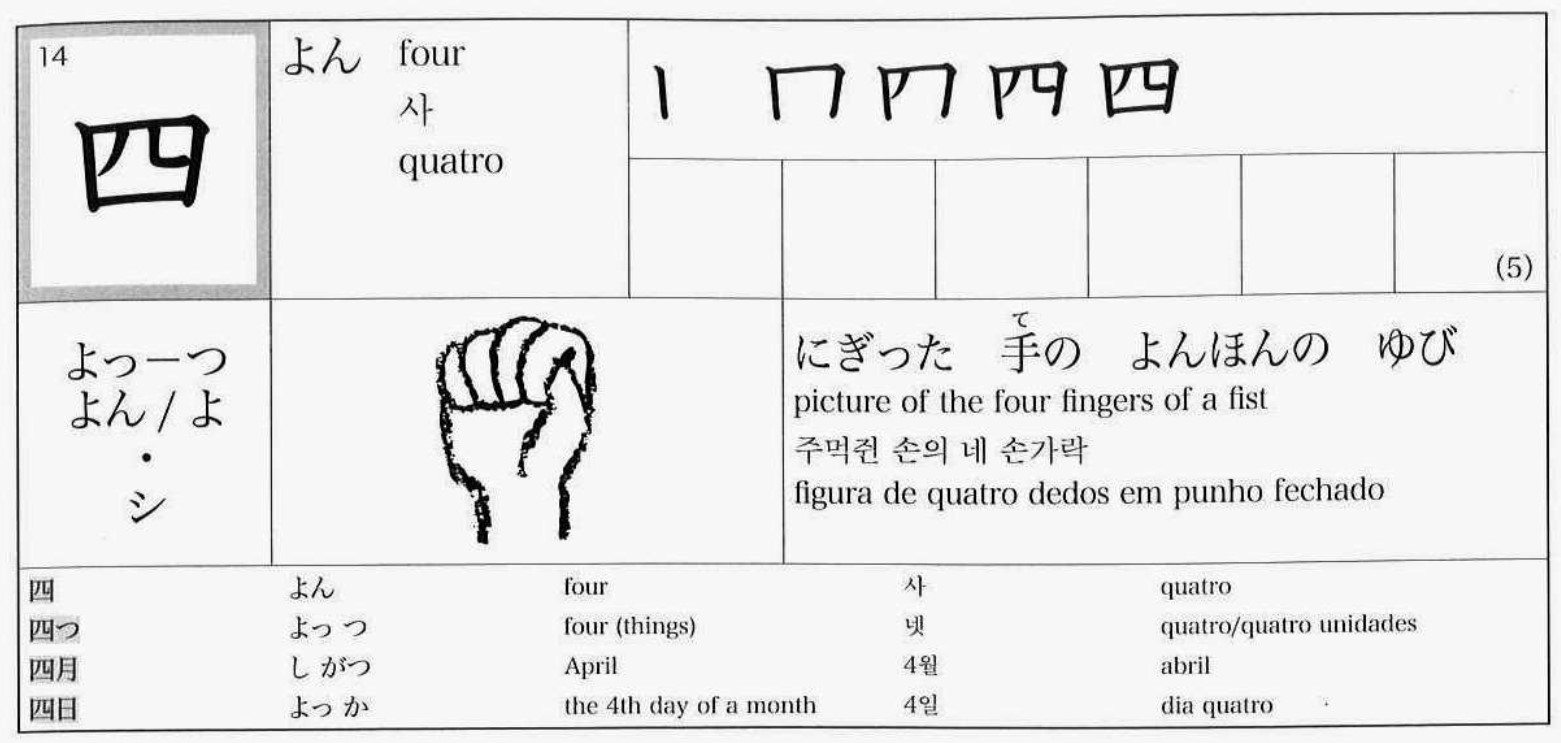 14
四
よん four
사
quatro
丨 冂 四
(5)
よっーつ
よん / よ
・
シ
て
にぎった 手の よんほんの ゆび
picture of the four fingers of a fist
주먹쥔 손의 네 손가락
figura de quatro dedos em punho fechado
四 よん four 사 quatro
四つ よっ つ four (things) 넷 quatro/quatro unidades
四月 し がつ April 4월 abril
四日 よっ か the 4th day of a month 4일 dia quatro